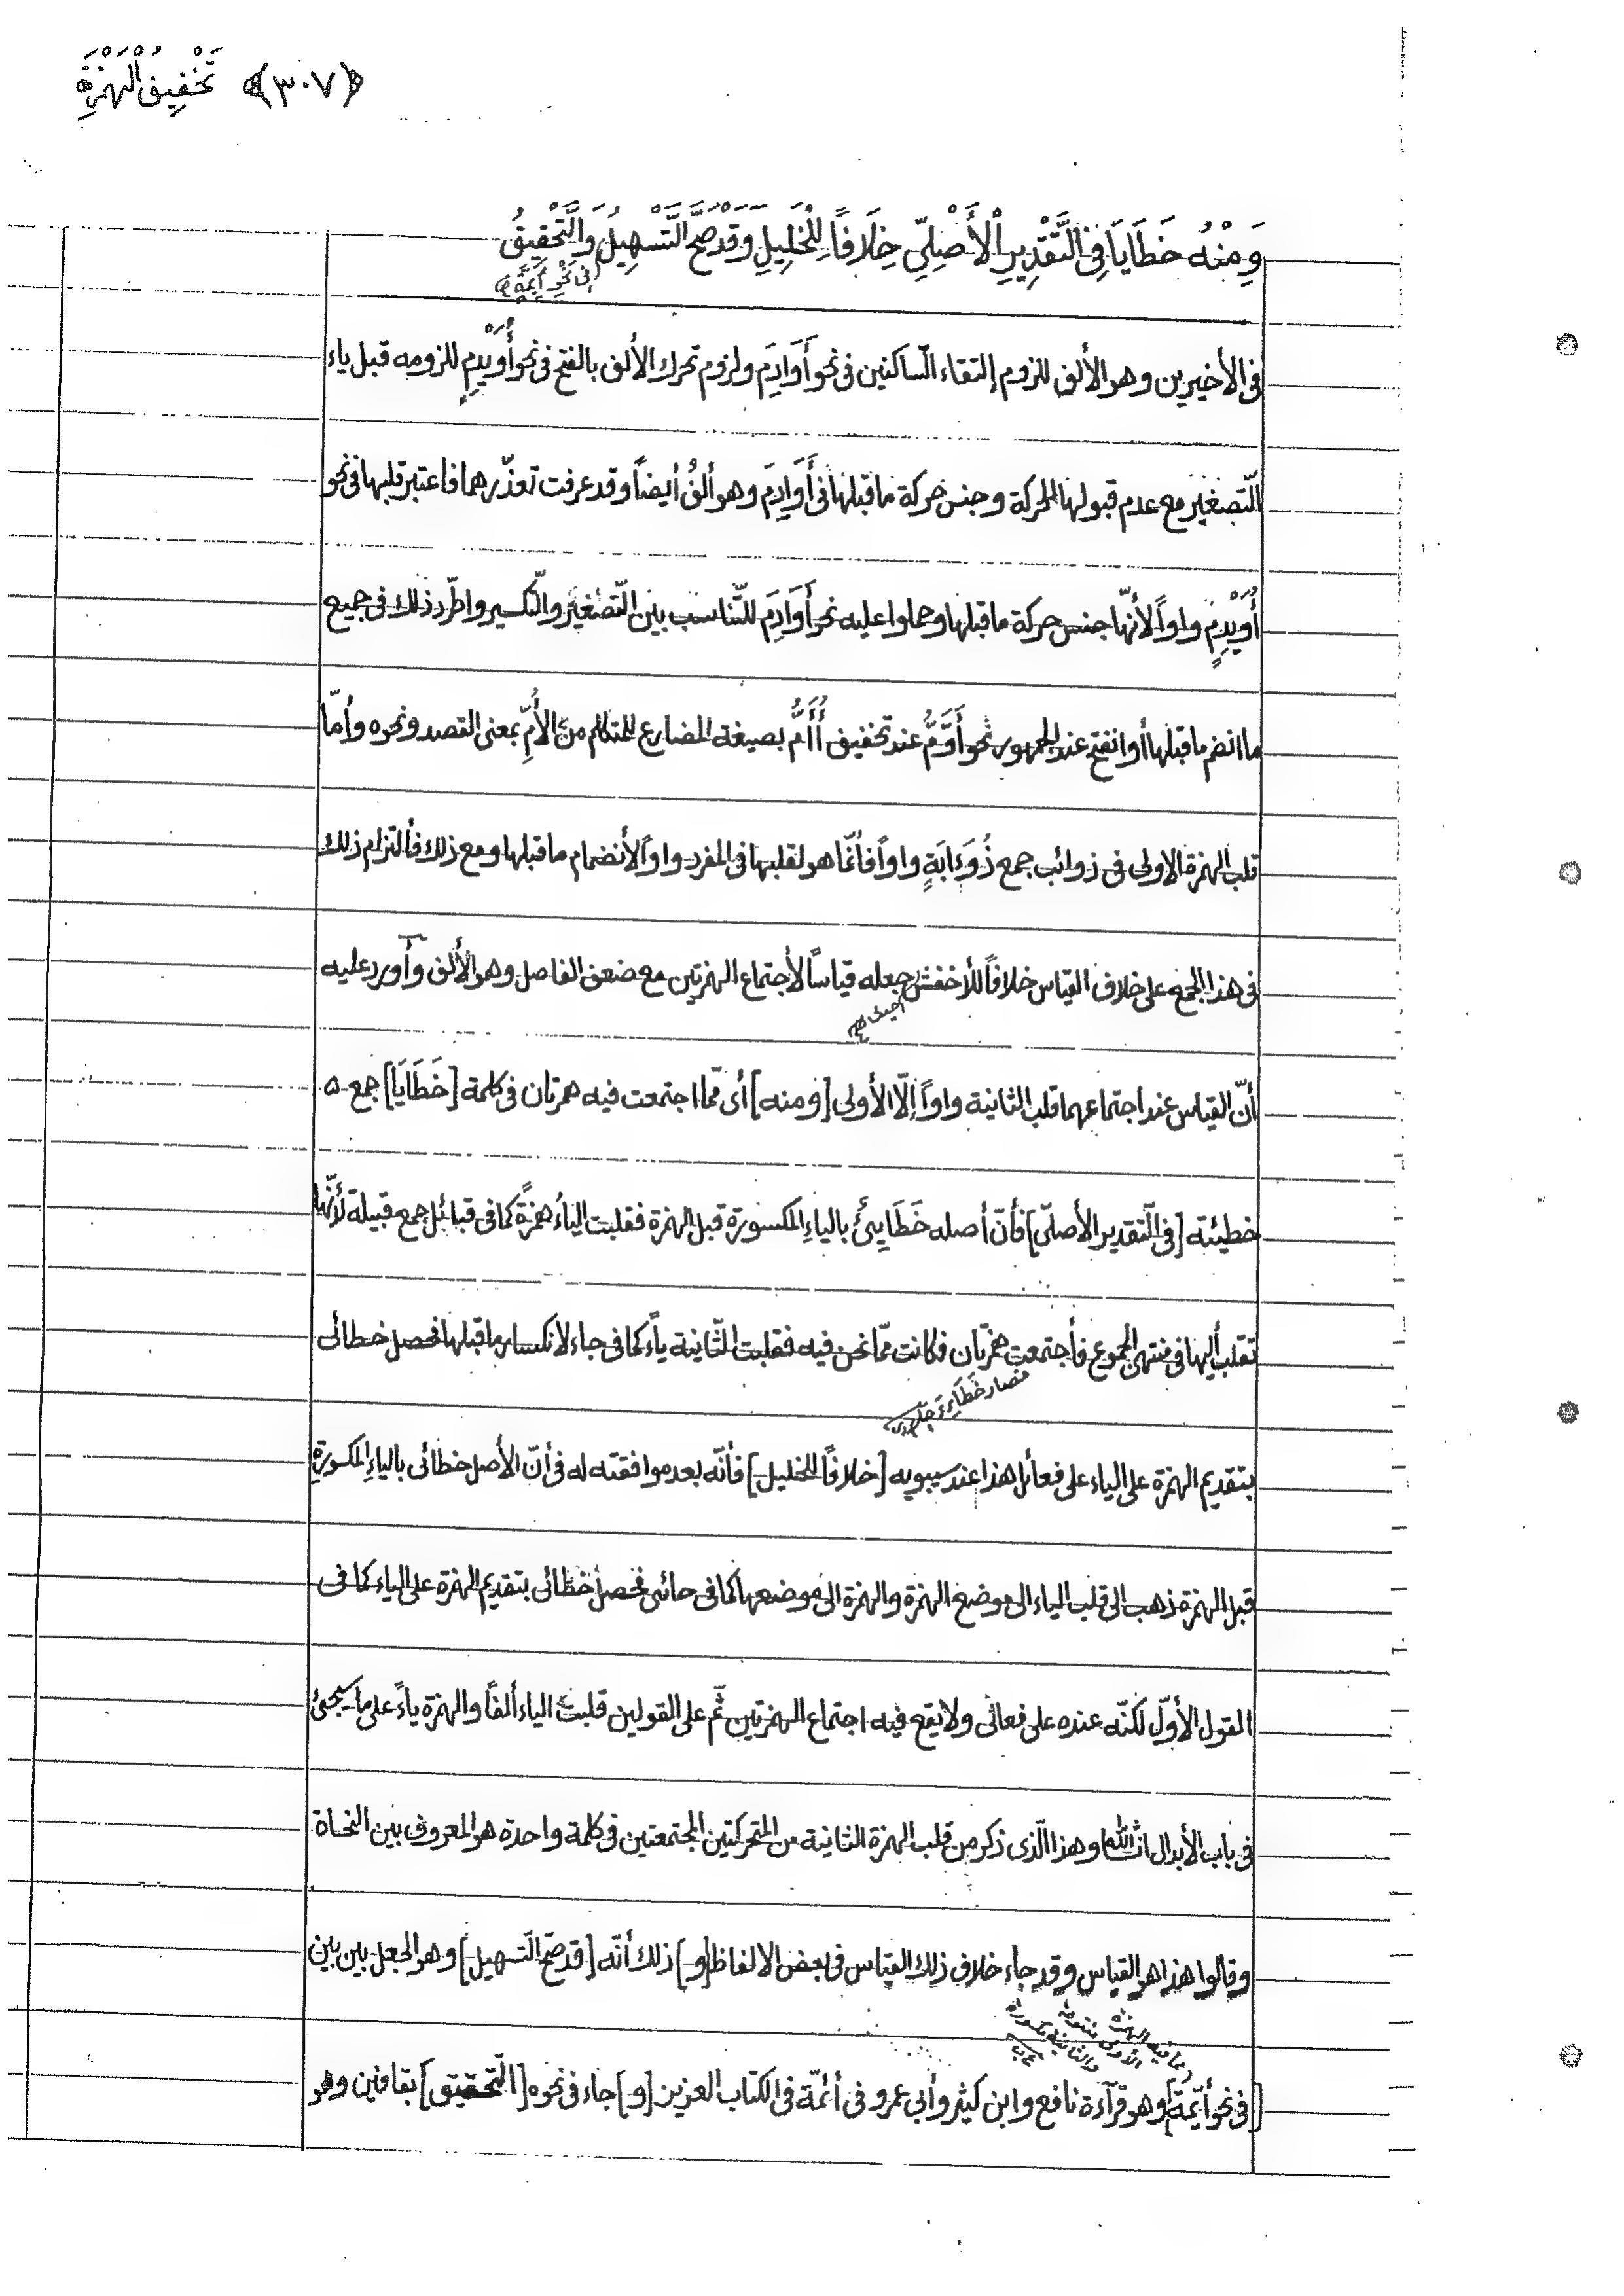 تَخْفِيفُ الْهَمْزَةِ ﴿٣٠٧﴾
وَمِنْهُ خَطَايَا فِي التَّقْدِيرِ الْأَصْلِيِّ خِلَافاً لِلْخَلِيلِ وَقَدْ صَحَّ التَّسْهِيلُ وَالتَّحْقِيقُ
فى نَحْوِ أَئِمَّةٍ
فى الأخيرين وهو الألف للزوم إلتقاء السّاكنين فى نحو أَوَادِمَ ولزوم تحرك الألف بالفتح فى نحو أُوَيْدِمٍ للزومه قبل ياء
التّصغير مع عدم قبولها الحركة وجنس حركة ما قبلها فى أَوَادِمَ وهو ألفُ أيضاً وقد عرفت تعذّرهما فاعتبر قلبها فى نحو
أُوَيْدِمٍ واواً لأنّها جنس حركة ما قبلها وحملوا عليه نحو أَوَادِمَ للتّناسب بين التّصغير والتّكسير واطّرد ذلك فى جميع
ما انضم ما قبلها أو انفتح عند الجمهور نحو أَوَمُّ عند تخفيف أَأُمُّ بصيغة المضارع للمتكلم من الأَمِّ بمعنى القصد ونحوه وأمّا
قلب الهمزة الاولى فى ذوائب جمع ذُوَءَابَةٍ واواً فأنّما هو لقلبها فى المفرد واواً لأنضمام ما قبلها ومع ذلك فألتزام ذلك
فى هذا الجمع على خلاف القياس خلافاً للأخفش جعله قياساً لأجتماع الهمزتين مع ضعف الفاصل وهو الألف وأورد عليه
أنّ القياس عند اجتماعهما قلب الثانية واواً إلّا الأولى [ومنه] أى ممّا اجتمعت فيه همزتان فى كلمة [خَطَايَا] جمع
خطيئته [فى التّقدير الأصلىّ] فأنّ أصله خَطَايِئُ بالياءِ المكسورة قبل الهمزة فقلبت الياءُ همزةً كما فى قبائل جمع قبيلة لأنّها
تقلب أليها فى منتهى الجموع فأجتمعت همزتان فكانت ممّا نحن فيه فقلبت الثّانية ياءً كما فى جاء لانكسار ما قبلها فحصل خطائى
بتقديم الهمزة على الياء على فعائل هذا عند سيبويه [خلافاً للخليل] فأنّه بعد موافقته له فى أنّ الأصل خطائى بالياءِ المكسورةِ
قبل الهمزة ذهب الى قلب الياء الى موضع الهمزة والهمزة الى موضعها كما فى جائى فحصل خطائى بتقديم الهمزة على الياء كما فى
القول الأوّل لكنّه عنده على فعالى ولا يقع فيه اجتماع الهمزتين ثمّ على القولين قلبت الياء ألفاً والهمزة ياءً على ما سيجئ
فى باب الأبدال انشاءالله وهذا الّذى ذكر من قلب الهمزة الثانية من المتحركتين المجتمعتين فى كلمة واحدة هو المعروف بين النحاة
وقالوا هذا هو القياس وقد جاء خلاف ذلك القياس فى بعض الالفاظ [و] ذلك أنّه [قد صحّ التّسهيل] وهو الجعل بين بين
[فى نحو أئِمّة] وهو قرآءة نافع وابن كثير وأبى عمرو فى أئمّة فى الكتاب العزيز [و] جاء فى نحوه [التّحقيق] بقافين وهو